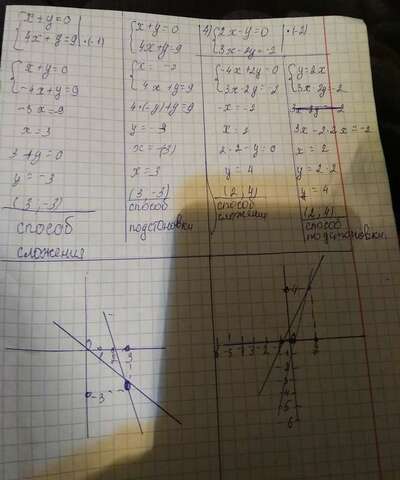 {x+y=0
{4x+y=9 |·(-1)
{x+y=0
{-4x+y=9
-3x=9
x=3
3+y=0
y=-3
(3,-3)
способ
сложения
{x+y=0
{4x+y=9
{x= -y
{4x+y=9
4·(-y)+y=9
y=-3
x=-(3)
x=3
(3,-3)
способ
подстановки
4) {2x-y=0 |·(-2)
{3x-2y=-2
{-4x+2y=0
{3x-2y=-2
-x=-2
x=2
2·2-y=0
y=4
(2,4)
способ
сложения
{y=2x
{3x-2y=-2
3x-2y=-2
3x-2·2x=-2
x=2
y=2·2
y=4
(2,4)
способ
подстановки
0 1 2 3
-3
4
-1
-2
-3
-4
-5
-6